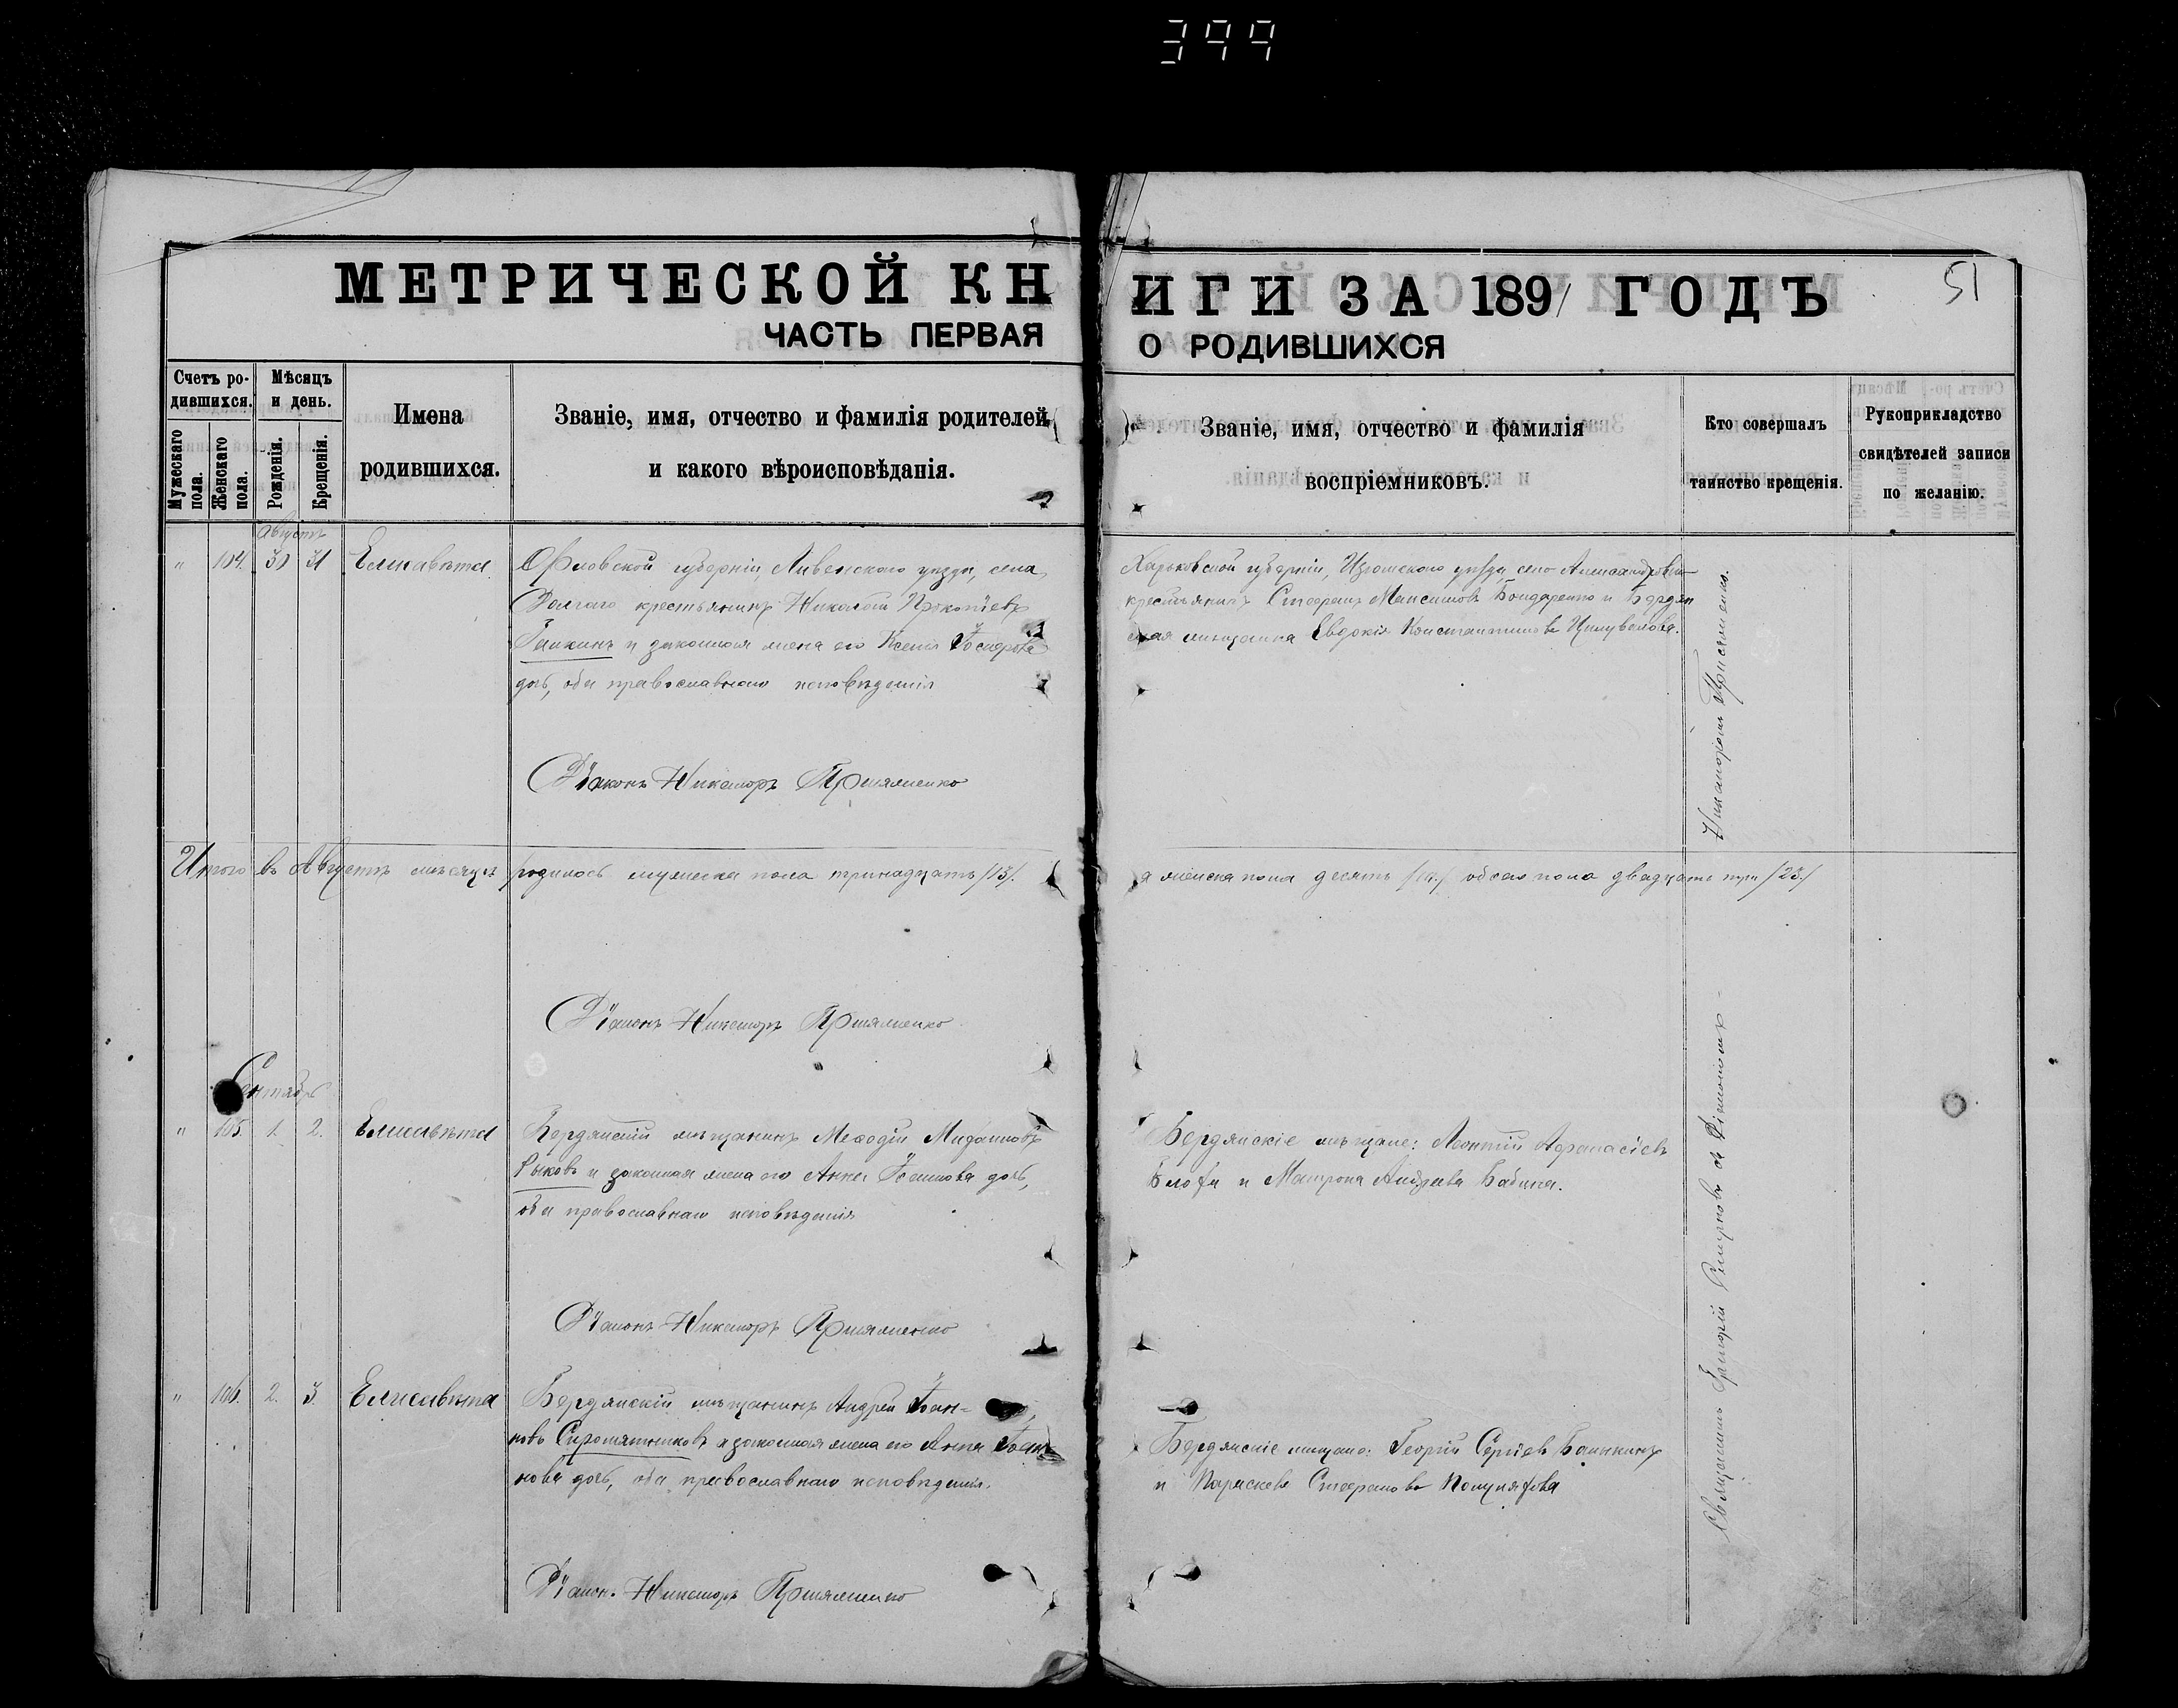 399
МЕТРИЧЕСКОЙ КНИГИ ЗА 1891 ГОДЪ
51
ЧАСТЬ ПЕРВАЯ О РОДИВШИХСЯ
Счетъ родившихся.
Мужескаго пола.
Женскаго пола.
Мѣсяцъ и день.
Рожденія.
Крещенія.
Имена родившихся.
Званіе, имя, отчество и фамилія родителей
и какого вѣроисповѣданія.
Званіе, имя, отчество и фамилія
воспріемниковъ.
Кто совершалъ
таинство крещенія.
Рукоприкладство
свидѣтелей записи
по желанію.
Августъ
" 104. 30 31 Елисавета
Орловской губерніи, Ливенскаго уѣзда, села
Долгаго крестьянинъ Николай Прокопіевъ
и законная жена его Ксенія Іосифова
дочь, оба православнаго исповѣданія
Діаконъ Никаноръ
Харьковской губерніи, Изюмскаго уѣзда, село
крестьянинъ Стефанъ Максимовъ Бондаренко и Бердян
ская мѣщанка Евдокія Константинова
Итого въ Августѣ мѣсяцѣ родилось мужеска пола тринадцать /13/.
а женска пола десять /10./ обоего пола двадцать три /23/
Діаконъ Никаноръ
Сентябрь
" 105. 1. 2. Елисавета
Бердянскій мѣщанинъ Меѳодій
Рыковъ и законная жена его Анна дочь,
оба православнаго исповѣданія
Діаконъ Никаноръ
Бердянскіе мѣщане: Леонтій Афанасіевъ
и Матрона Андреева Бабина.
" 106. 2. 3. Елисавета
Бердянскій мѣщанинъ Андрей Іоан-
новъ Сыромятниковъ и законная жена его Анна Іоан-
нова дочь, оба православнаго исповѣданія.
Діакон. Никаноръ
Бердянскіе мѣщане: Георгій Сергіевъ
и Параскева Стефанова
Священникъ Григорій съ Діакономъ
Никаноромъ